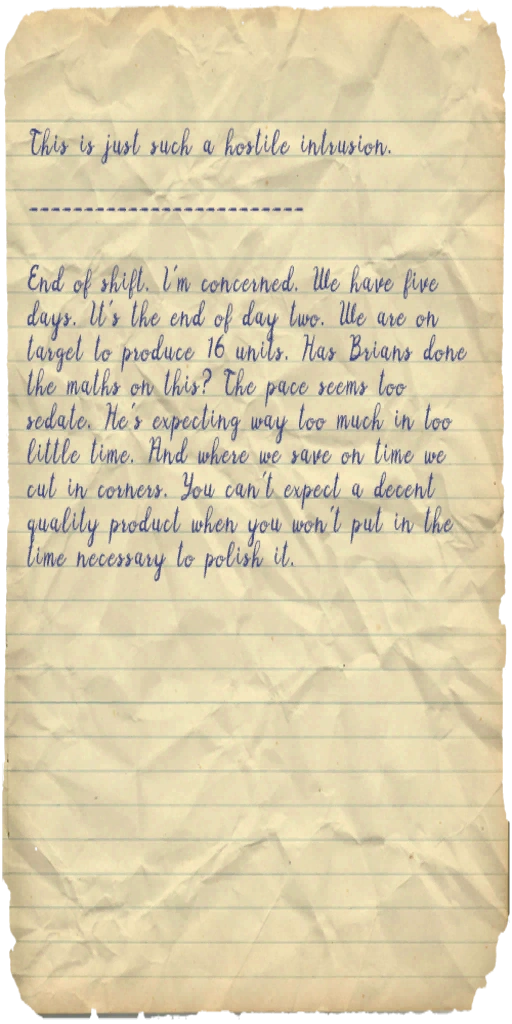 This is just such a hostile intrusion.
-------------------------
End of shift. I'm concerned. We have five
days. It's the end of day two. We are on
target to produce 16 units. Has Brians done
the maths on this? The pace seems too
sedate. He's expecting way too much in too
little time. And where we save on time we
cut in corners. You can't expect a decent
quality product when you won't put in the
time necessary to polish it.